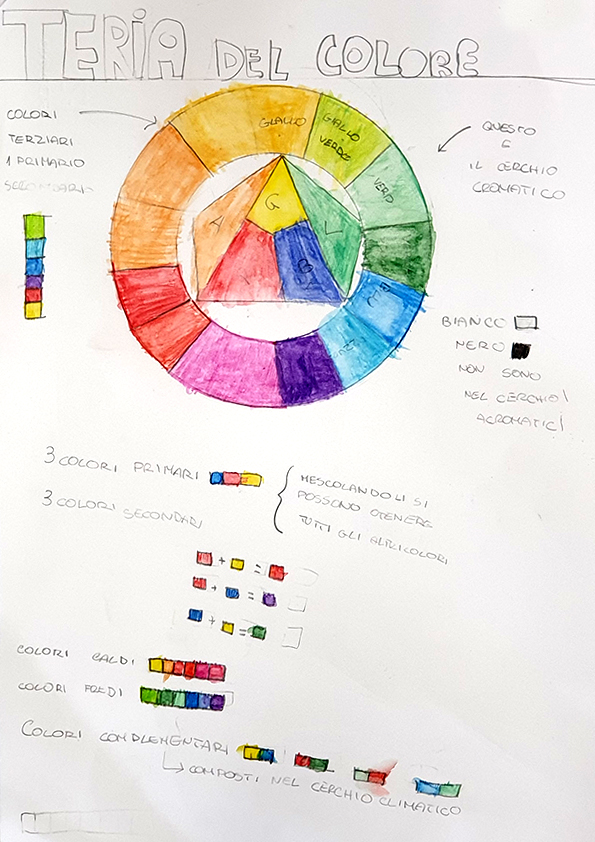 TERIA DEL COLORE
COLORI
TERZIARI
1 PRIMARIO
SECONDARIO
GIALLO
GIALLO
VERDE
VERD
G
A
V
B
QUESTO
È
IL CERCHIO
CROMATICO
BIANCO
NERO
NON SONO
NEL CERCHIO
ACROMATICI
3 COLORI PRIMARI
3 COLORI SECONDARI
MESCOLANDOLI SI
POSSONO OTENERE
TUTTI GLI ALTRI COLORI
+ =
+ =
+ =
COLORI CALDI
COLORI FREDI
COLORI COMDLEMENTARI
COMPOSTI NEL CERCHIO CLIMATICO